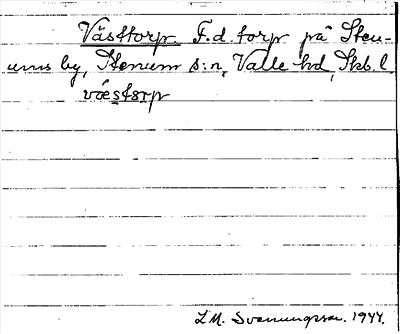 Västtorp. F.d. torp på Sten-
ums by, Stenum s:n, Valle hd, Skb. l.
väestorp
L.M. Svenungsson. 1944.